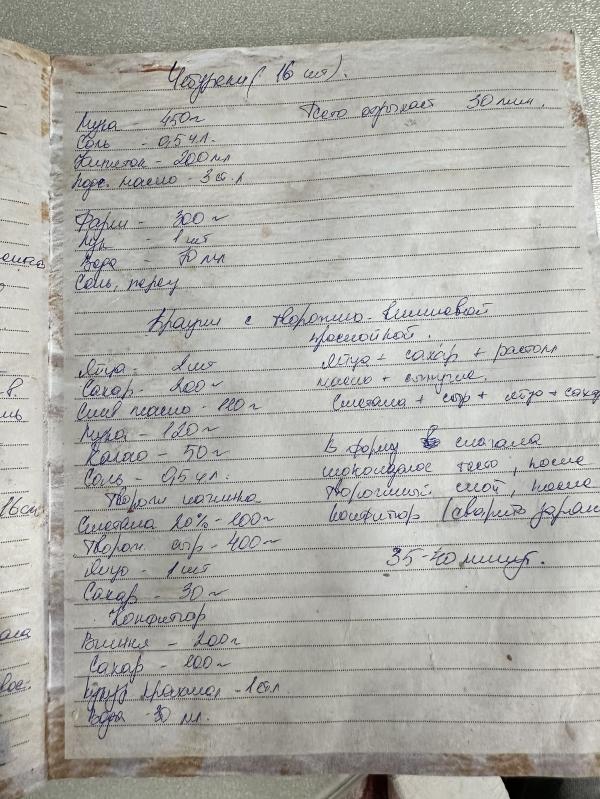 Чебуреки (16 шт).
Мука - 450 г
Тесто отдыхает 30 мин.
Соль - 0,5 ч л.
Кипяток - 200 мл
подс. масло - 3 ст. л
Фарш - 300 г
Лук - 1 шт
Вода - 70 мл
Соль, перец
Брауни с творожно-вишневой
прослойкой.
Яйца - 2 шт
Сахар - 200 г
Слив масло - 120 г
Мука - 120 г
Какао - 50 г
Соль - 0,5 ч л.
Творож начинка
Сметана 20% - 100 г
Творож сыр - 400 г
Яйцо - 1 шт
Сахар - 30 г
Конфитюр
Вишня - 200 г
Сахар - 100 г
Кукур крахмал - 1 ст л
Вода - 30 мл.
Яйца + сахар + растоп
масло + сыпучие.
Сметана + сыр + яйцо + сахар
В форму сначала
шоколадное тесто, после
творожный слой, после
конфитюр (сварить заран
35-40 минут.
16см